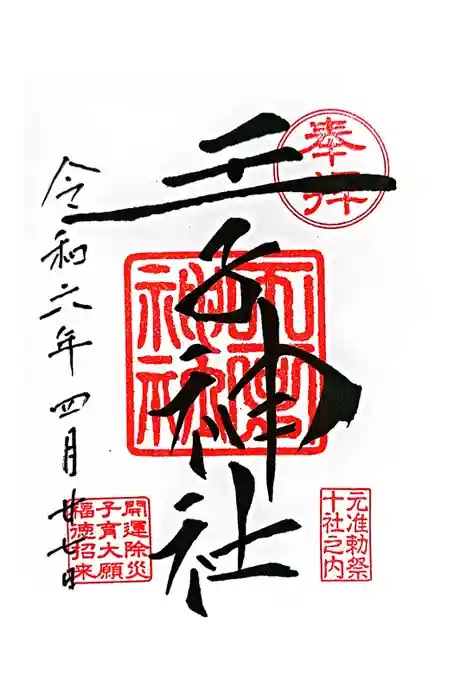 奉拝
元准勅祭
十社之内
王子神社
開運除災
子育大願
福徳招来
令和六年四月廿七日